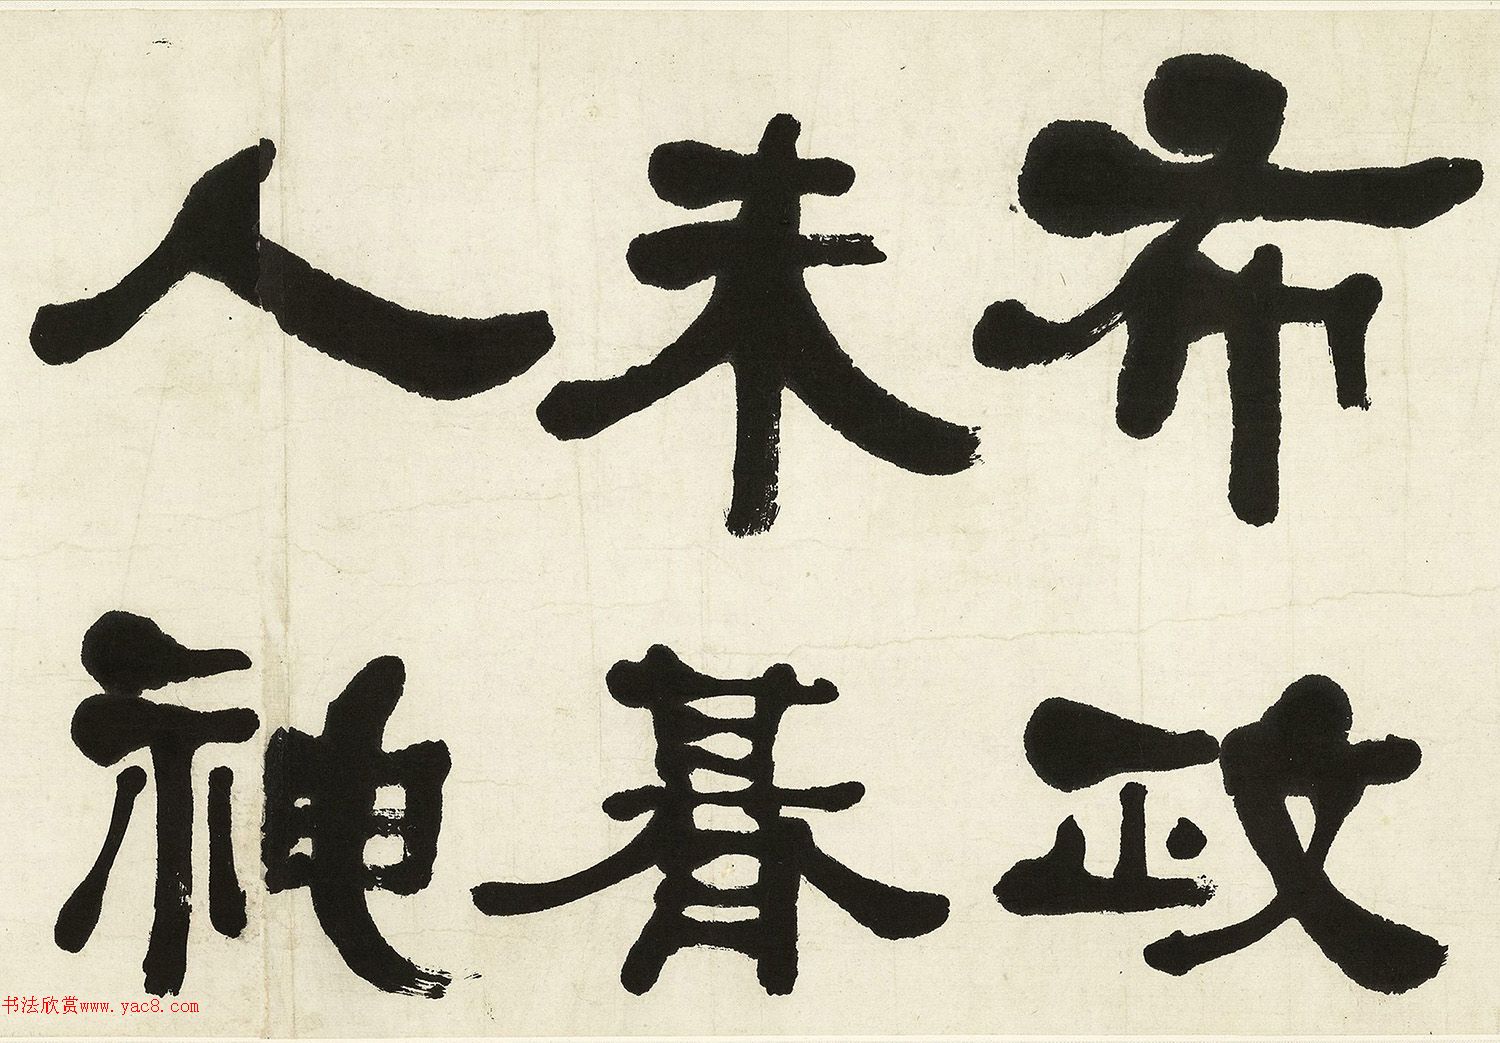 布政
未朞
人神
书法欣赏www.yac8.com